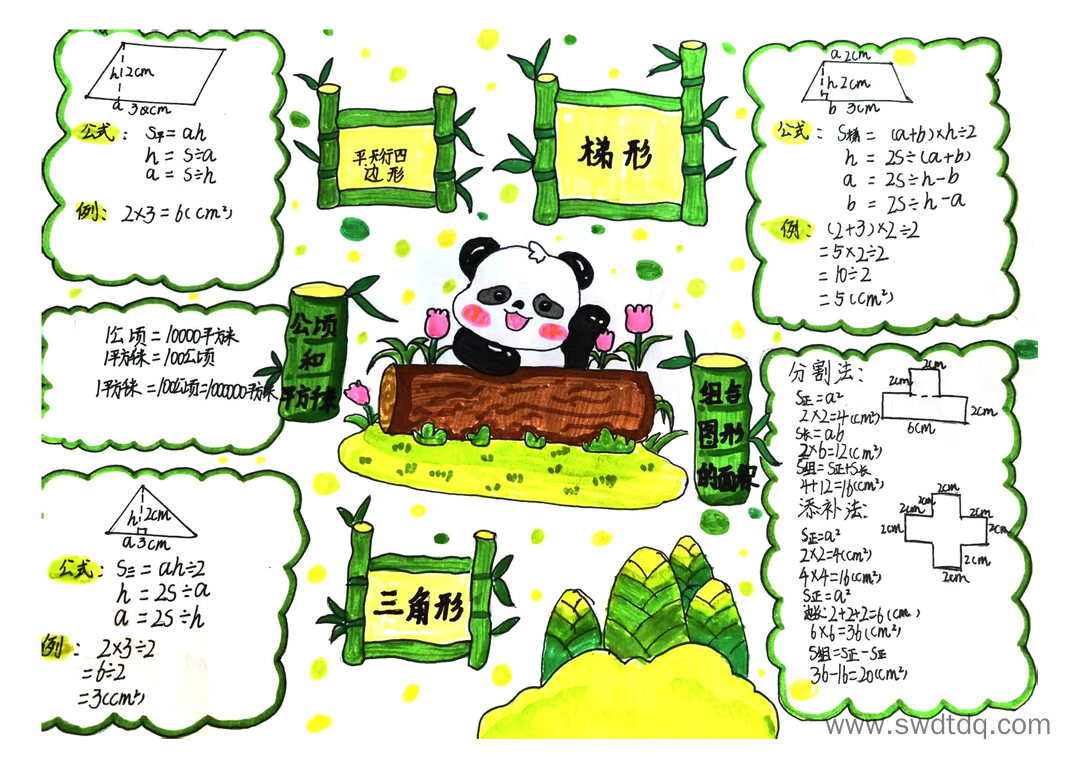 h 2cm
a 3cm
公式: S平=ah
h=S÷a
a=S÷h
例: 2×3=6(cm²)
平行四
边形
梯形
a 2cm
h 2cm
b 3cm
公式: S梯=(a+b)×h÷2
h=2S÷(a+b)
a=2S÷h-b
b=2S÷h-a
例: (2+3)×2÷2
=5×2÷2
=10÷2
=5(cm²)
1公顷=10000平方米
1平方千米=100公顷
1平方千米=100公顷=1000000平方米
公顷
和
平方千米
组合
图形
的面积
分割法:
S正=a²
2×2=4(cm²)
S长=ab
2×6=12(cm²)
S组=S正+S长
4+12=16(cm²)
2cm
2cm
2cm
6cm
添补法:
S正=a²
2×2=4(cm²)
4×4=16(cm²)
S正=a²
边长2+2+2=6(cm)
6×6=36(cm²)
S组=S正-S正
36-16=20(cm²)
2cm
2cm
2cm
2cm
2cm
2cm
2cm
2cm
2cm
h 2cm
a 3cm
公式: S三=ah÷2
h=2S÷a
a=2S÷h
例: 2×3÷2
=6÷2
=3(cm²)
三角形
www.swdtdq.com